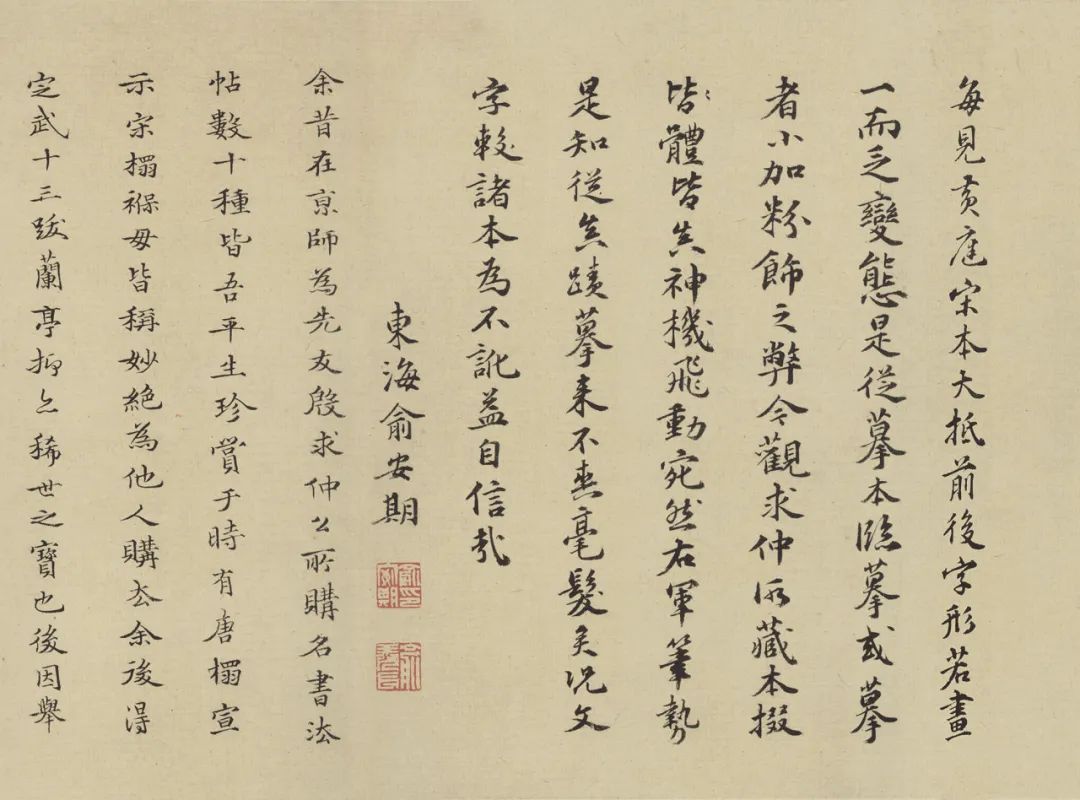 每見黃庭宋本大抵前後字形若畫
一而乏變態是從摹本臨摹或摹
者小加粉飾之弊今觀求仲所藏本掇
皆體皆真神機飛動宛然右軍筆勢
是知從真蹟摹來不爽毫髮矣況文
字較諸本為不訛益自信哉
東海俞安期
余昔在京師為先友殷求仲公所購名書法
帖數十種皆吾平生珍賞于時有唐搨宣
示宋搨褓母皆稱妙絕為他人購去余後得
定武十三跋蘭亭抑亦稀世之寶也後因舉